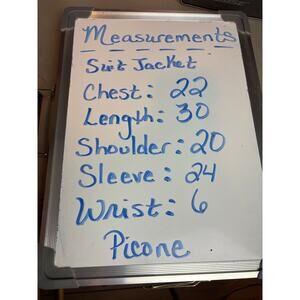 Measurements
Suit Jacket
Chest: 22
Length: 30
Shoulder: 20
Sleeve: 24
Wrist: 6
Picone